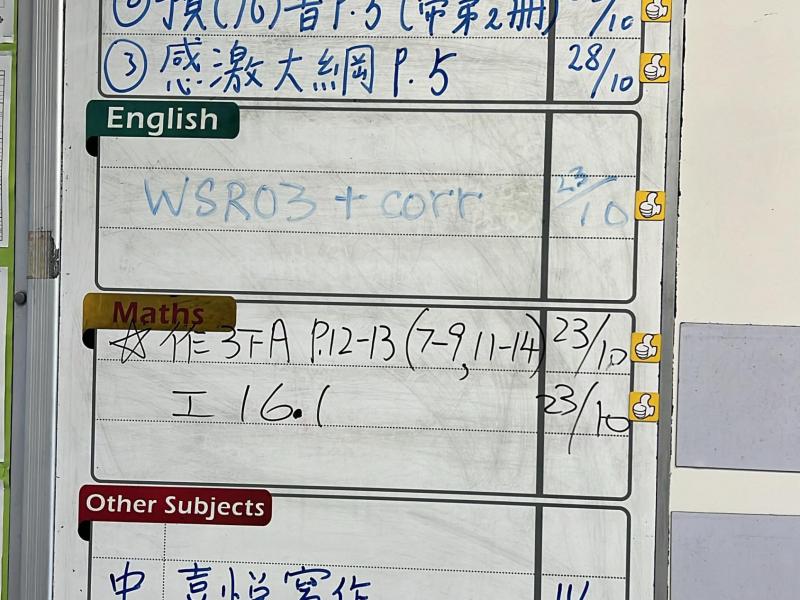 ② 預(九)音 P.5 (帶第2冊) /10
③ 感激大綱 P.5 28/10
English
WSR03 + corr 23/10
Maths
☆ 作3下A P.12-13 (7-9, 11-14) 23/10
工 16.1 23/10
Other Subjects
中 喜悅寫作